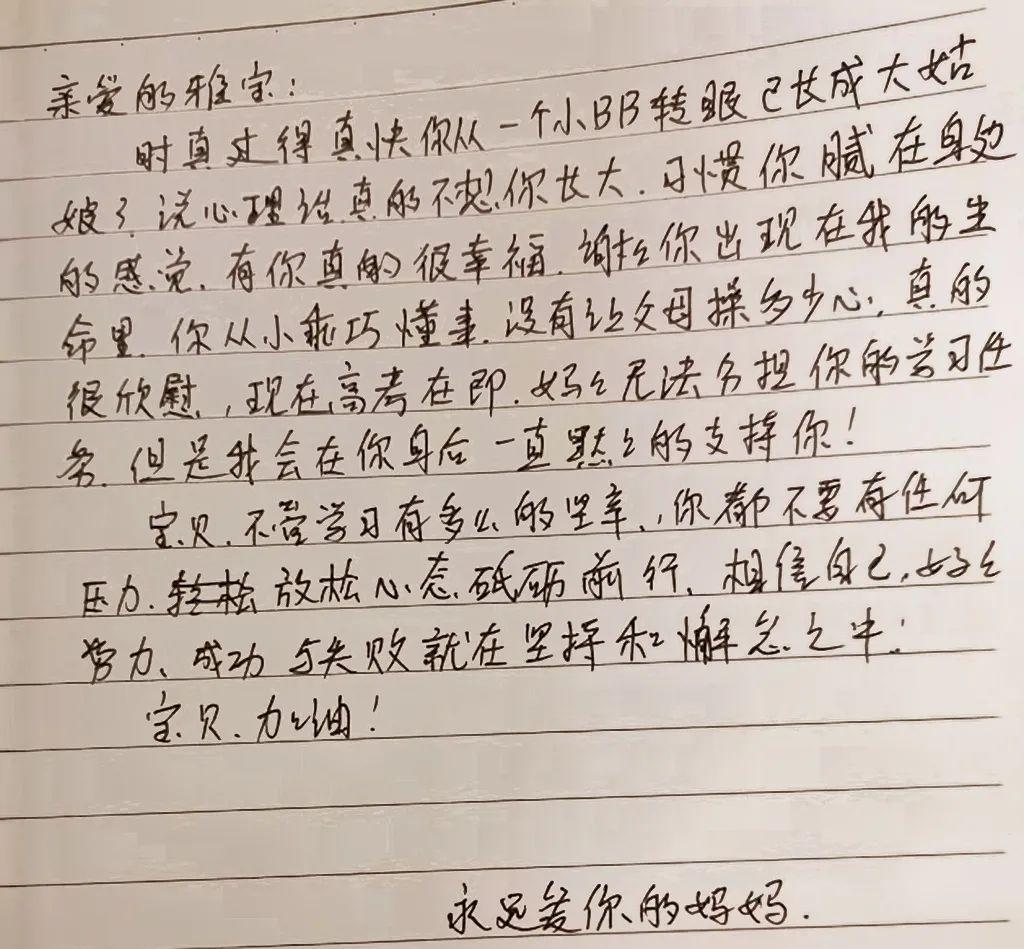 亲爱的雅宝：
时真过得真快你从一个小BB转眼已长成大姑
娘了.说心理话真的不想你长大.习惯你腻在身边
的感觉.有你真的很幸福.谢谢你出现在我的生
命里.你从小乖巧懂事.没有让父母操多少心,真的
很欣慰,现在高考在即.妈妈无法分担你的学习任
务.但是我会在你身后一直默默的支持你!
宝贝.不管学习有多么的坚辛,你都不要有任何
压力.轻松放松心态.砥砺前行.相信自己,好好
努力、成功与失败就在坚持和懈怠之中.
宝贝.加油!
永远爱你的妈妈.